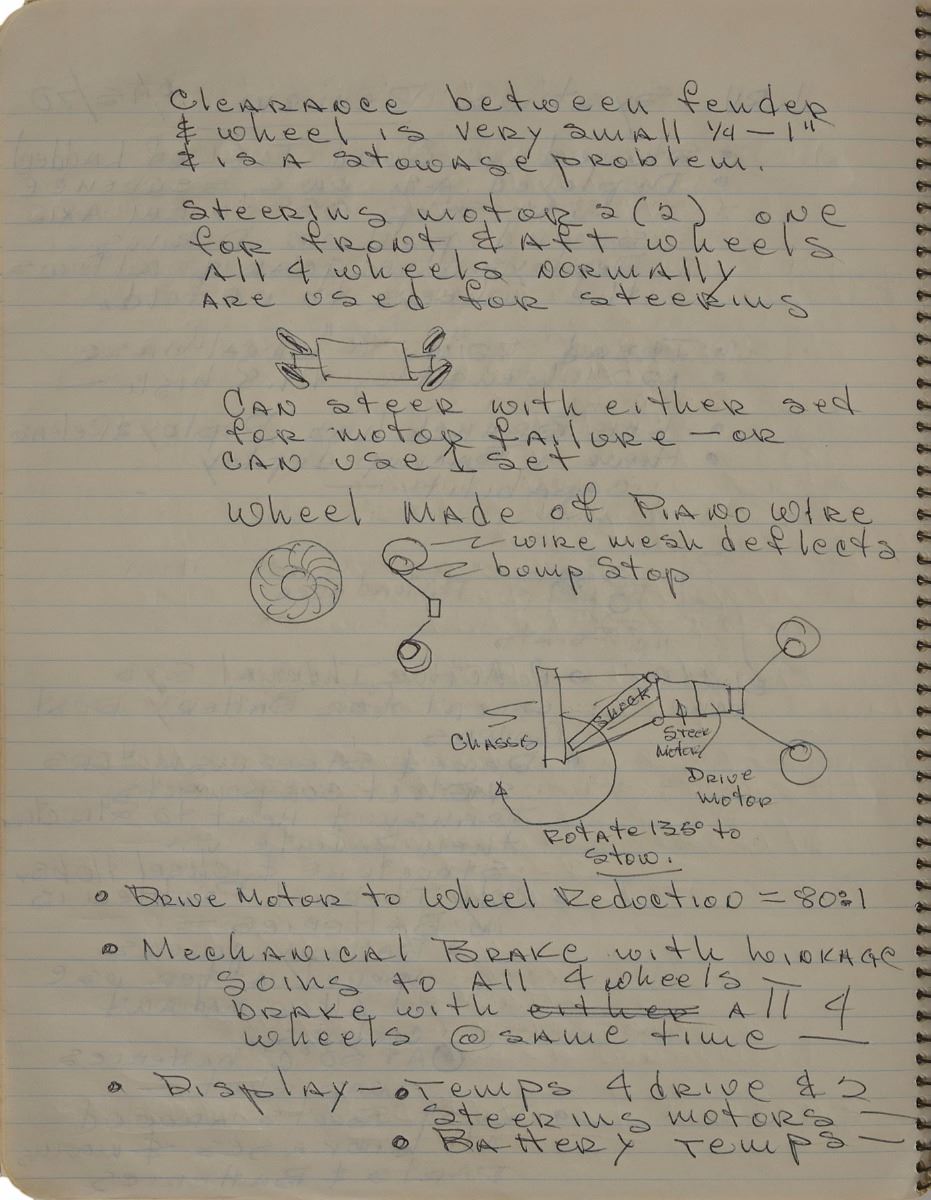 Clearance between fender
& wheel is very small 1/4 – 1"
& is a stowage problem.
Steering motors (2) one
for front & aft wheels
All 4 wheels normally
are used for steering
Can steer with either sed
for motor failure – or
can use 1 set
Wheel made of Piano wire
wire mesh deflects
bump stop
Shock
Chassis
Steer
Motor
Drive
Motor
Rotate 135° to
Stow.
• Drive Motor to Wheel Reduction = 80:1
• Mechanical Brake with linkage
going to all 4 wheels –
brake with either all 4
wheels @ same time —
• Display – • Temps 4 drive & 2
steering motors –
• Battery temps –